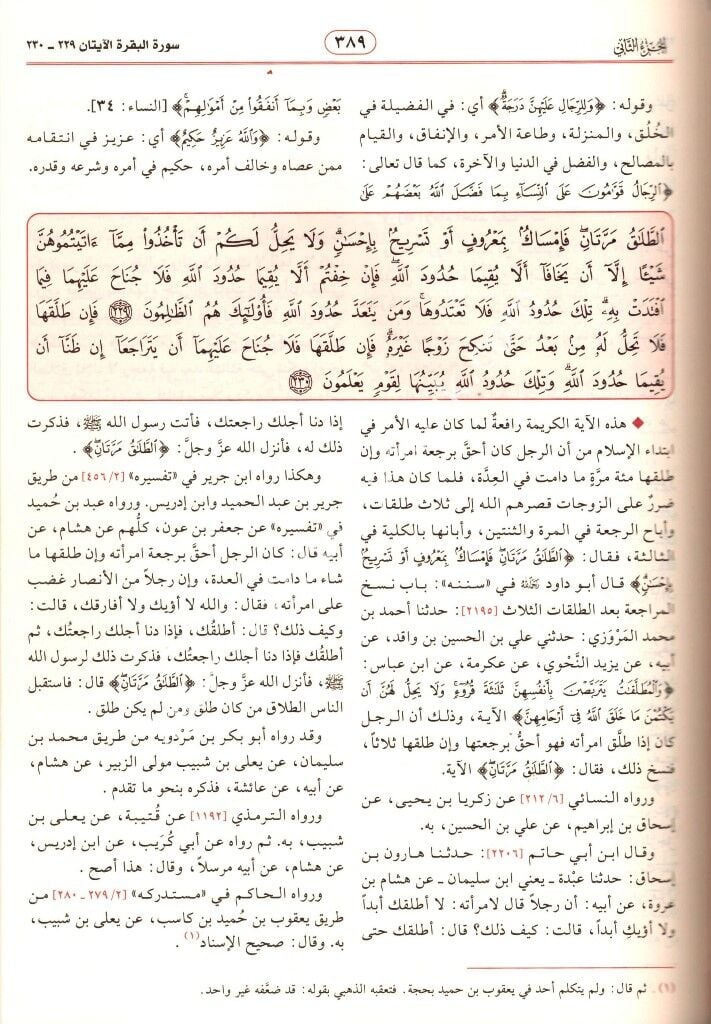 الجزء الثاني
٣٨٩
سورة البقرة الآيتان ٢٢٩ - ٢٣٠
وقوله: ﴿وَلِلرِّجَالِ عَلَيْهِنَّ دَرَجَةٌ﴾ أي: في الفضيلة في
الخُلُق، والمنزلة، وطاعة الأمر، والإنفاق، والقيام
بالمصالح، والفضل في الدنيا والآخرة، كما قال تعالى:
﴿الرِّجَالُ قَوَّامُونَ عَلَى النِّسَاءِ بِمَا فَضَّلَ اللَّهُ بَعْضَهُمْ عَلَىٰ
بَعْضٍ وَبِمَا أَنفَقُوا مِنْ أَمْوَالِهِمْ﴾ [النساء: ٣٤].
وقوله: ﴿وَاللَّهُ عَزِيزٌ حَكِيمٌ﴾ أي: عزيز في انتقامه
ممن عصاه وخالف أمره، حكيم في أمره وشرعه وقدره.
الطَّلَٰقُ مَرَّتَانِ ۖ فَإِمْسَاكٌۢ بِمَعْرُوفٍ أَوْ تَسْرِيحٌۢ بِإِحْسَٰنٍ ۗ وَلَا يَحِلُّ لَكُمْ أَن تَأْخُذُوا۟ مِمَّآ ءَاتَيْتُمُوهُنَّ
شَيْـًٔا إِلَّآ أَن يَخَافَآ أَلَّا يُقِيمَا حُدُودَ اللَّهِ ۖ فَإِنْ خِفْتُمْ أَلَّا يُقِيمَا حُدُودَ اللَّهِ فَلَا جُنَاحَ عَلَيْهِمَا فِيمَا
افْتَدَتْ بِهِۦ ۗ تِلْكَ حُدُودُ اللَّهِ فَلَا تَعْتَدُوهَا ۚ وَمَن يَتَعَدَّ حُدُودَ اللَّهِ فَأُو۟لَٰٓئِكَ هُمُ الظَّٰلِمُونَ ۝٢٢٩ فَإِن طَلَّقَهَا
فَلَا تَحِلُّ لَهُۥ مِنۢ بَعْدُ حَتَّىٰ تَنكِحَ زَوْجًا غَيْرَهُۥ ۗ فَإِن طَلَّقَهَا فَلَا جُنَاحَ عَلَيْهِمَآ أَن يَتَرَاجَعَآ إِن ظَنَّآ أَن
يُقِيمَا حُدُودَ اللَّهِ ۗ وَتِلْكَ حُدُودُ اللَّهِ يُبَيِّنُهَا لِقَوْمٍ يَعْلَمُونَ ۝٢٣٠
◆ هذه الآية الكريمة رافعةٌ لما كان عليه الأمر في
ابتداء الإسلام من أن الرجل كان أحقَّ برجعة امرأته وإن
طلقها مئة مرَّةٍ ما دامت في العِدَّة، فلما كان هذا فيه
ضررٌ على الزوجات قصرهم الله إلى ثلاث طلقات،
وأباح الرجعة في المرة والثنتين، وأبانها بالكلية في
الثالثة، فقال: ﴿الطَّلَٰقُ مَرَّتَانِ ۖ فَإِمْسَاكٌۢ بِمَعْرُوفٍ أَوْ تَسْرِيحٌۢ
بِإِحْسَٰنٍ﴾ قال أبو داود رحمه الله في «سننه»: باب نسخ
المراجعة بعد الطلقات الثلاث [٢١٩٥]: حدثنا أحمد بن
محمد المَرْوَزي: حدثني علي بن الحسين بن واقد، عن
أبيه، عن يزيد النَّحْوي، عن عكرمة، عن ابن عباس:
﴿وَالْمُطَلَّقَٰتُ يَتَرَبَّصْنَ بِأَنفُسِهِنَّ ثَلَٰثَةَ قُرُوٓءٍ ۚ وَلَا يَحِلُّ لَهُنَّ أَن
يَكْتُمْنَ مَا خَلَقَ اللَّهُ فِىٓ أَرْحَامِهِنَّ﴾ الآية، وذلك أن الرجل
كان إذا طلَّق امرأته فهو أحقُّ برجعتها وإن طلقها ثلاثاً،
فنسخ ذلك، فقال: ﴿الطَّلَٰقُ مَرَّتَانِ﴾ الآية.
ورواه النسائي [٢١٢/٦] عن زكريا بن يحيى، عن
إسحاق بن إبراهيم، عن علي بن الحسين، به.
وقال ابن أبي حاتم [٢٢٠٦]: حدثنا هارون بن
إسحاق: حدثنا عبْدة ـ يعني ابن سليمان ـ عن هشام بن
عروة، عن أبيه: أن رجلاً قال لامرأته: لا أطلقك أبداً
ولا أؤيكِ أبداً، قالت: كيف ذلك؟ قال: أطلقك حتى
إذا دنا أجلك راجعتك، فأتت رسول الله ﷺ، فذكرت
ذلك له، فأنزل الله عزَّ وجلَّ: ﴿الطَّلَٰقُ مَرَّتَانِ﴾.
وهكذا رواه ابن جرير في «تفسيره» [٤٥٦/٢] من طريق
جرير بن عبد الحميد وابن إدريس. ورواه عبد بن حُميد
في «تفسيره» عن جعفر بن عون، كلُّهم عن هشام، عن
أبيه قال: كان الرجل أحقَّ برجعة امرأته وإن طلقها ما
شاء ما دامت في العدة، وإن رجلاً من الأنصار غضب
على امرأته، فقال: والله لا أؤيك ولا أفارقك، قالت:
وكيف ذلك؟ قال: أطلقُك، فإذا دنا أجلك راجعتُك، ثم
أطلقُك فإذا دنا أجلك راجعتُك، فذكرت ذلك لرسول الله
ﷺ، فأنزل الله عزَّ وجلَّ: ﴿الطَّلَٰقُ مَرَّتَانِ﴾ قال: فاستقبل
الناس الطلاق من كان طلق ومن لم يكن طلق.
وقد رواه أبو بكر بن مَرْدويه من طريق محمد بن
سليمان، عن يعلى بن شبيب مولى الزبير، عن هشام،
عن أبيه، عن عائشة، فذكره بنحو ما تقدم.
ورواه الترمذي [١١٩٢] عن قُتيبة، عن يعلى بن
شبيب، به. ثم رواه عن أبي كُرَيب، عن ابن إدريس،
عن هشام، عن أبيه مرسلاً، وقال: هذا أصح.
ورواه الحاكم في «مستدركه» [٢٧٩/٢ ـ ٢٨٠] من
طريق يعقوب بن حُميد بن كاسب، عن يعلى بن شبيب،
به. وقال: صحيح الإسناد(١).
(١). ثم قال: ولم يتكلم أحد في يعقوب بن حميد بحجة. فتعقبه الذهبي بقوله: قد ضعَّفه غير واحد.